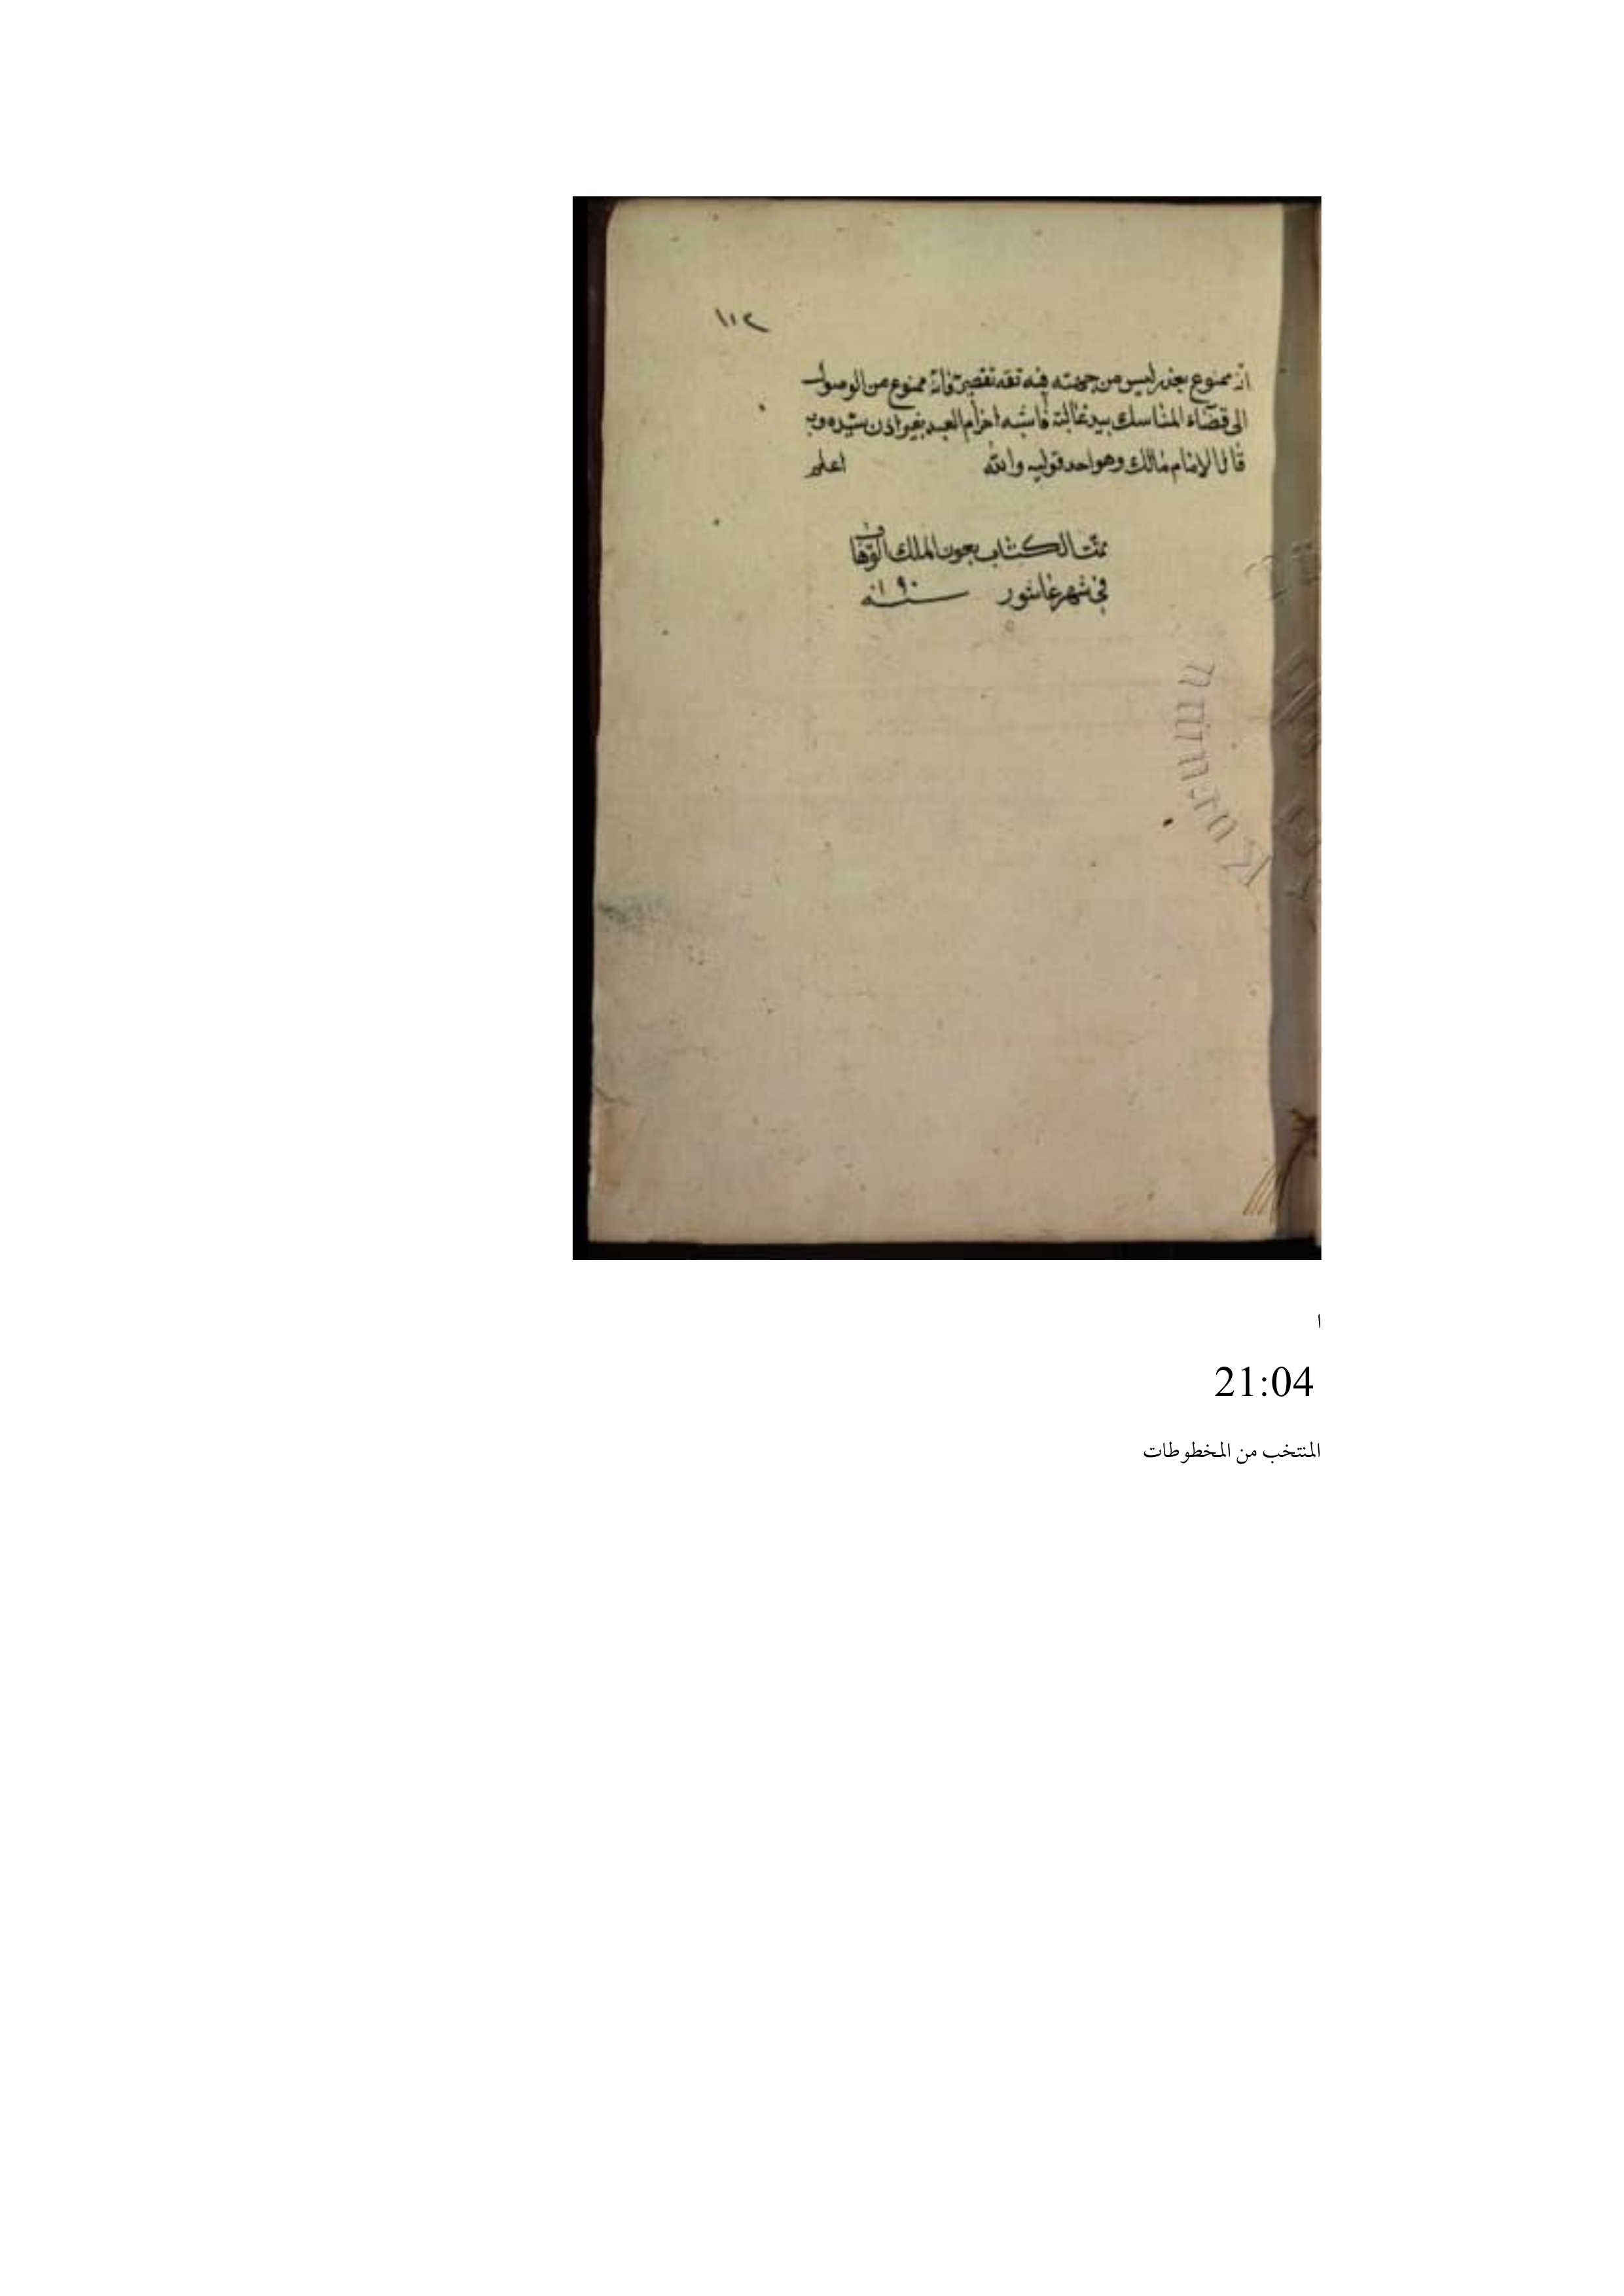 ١١٢
انه ممنوع بعذر ليس من جهته فيه تقصير فانه ممنوع من الوصول
الى قضاء المناسك بيد غالبة فاشبه احرام العبد بغير اذن سيده وبه
قال الامام مالك وهو احد قوليه والله اعلم
تمت الكتاب بعون الملك الوهاب
في شهر عاشور سنه
Kurumu
ا
21:04
المنتخب من المخطوطات